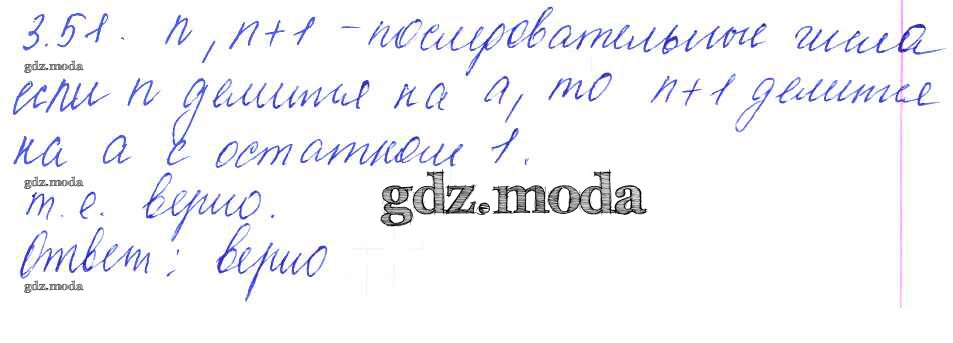 3.51. n, n+1 - последовательные числа
gdz.moda
если n делится на a, то n+1 делится
на a с остатком 1.
gdz.moda
т.е. верно.
gdz.moda
Ответ: верно
gdz.moda